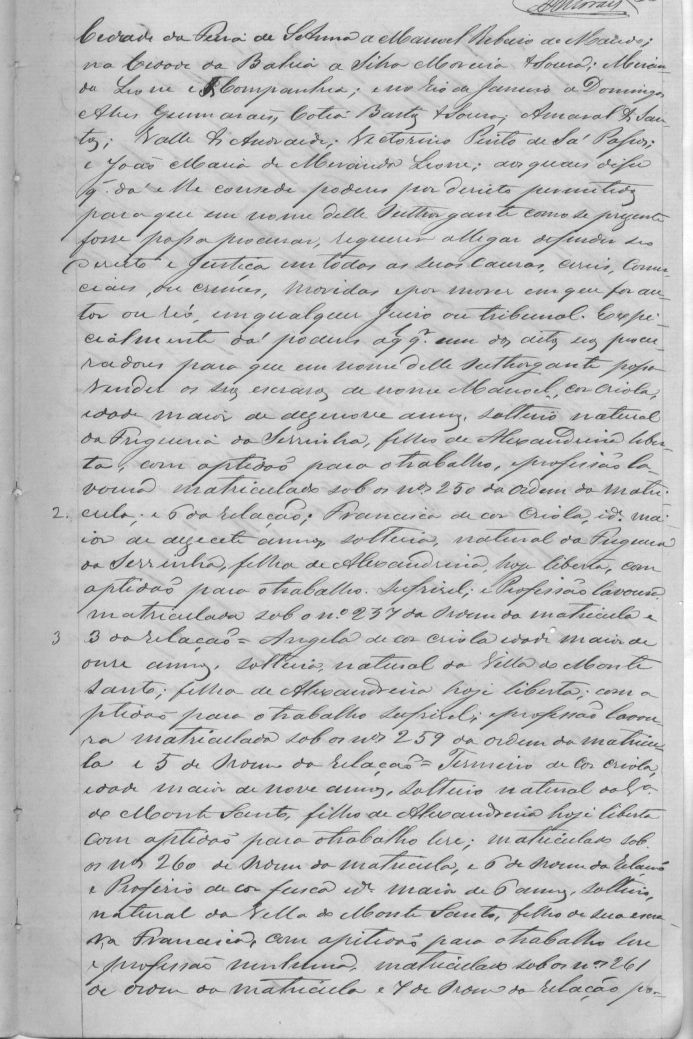 Cidade da Feira de Santanna a Manoel Ribeiro de Macedo;
na Cidade da Bahia a Silva Moreira & Souza; Miran
da Leone e Companhia; e no Rio de Janeiro a Domingos
Alves Guimarães, Cotia Bastos & Souza; Amaral & San
tos; Valle & Andrade; Victorino Pinto de Sá Passos;
e João Maria de Miranda Leone; aos quais disse
q. dá e lhe consede poderes por dereito permetidos
para que em nome delle outhorgante como se prezente
fosse possa procurar, requerer allegar defender seo
Dereito e justiça em todas as suas cauzas, civeis, Comer
ciais, ou crimes, movidas e por mover em que for au-
tor ou réo, em qualquer juizo ou tribunal. Expe-
cialmente dá poderes a q.q. um dos ditos seus procu-
radores para que em nome delle outhorgante possa
vender os seus escravos de nome Manoel, cor criola,
idade maior de dezenove annos, solteiro natural
da Friguezia da Serrinha, filho de Alexandreina liber-
ta, com aptidaõ para o trabalho, e professão la-
voura matriculado sob os nos 250 da ordem da matri-
2. cula, e 6 da relação; Francisca de cor criola, id.e ma-
ior de dezecete annos, solteira, natural da Friguezia
da Serrinha, filha de Alexandreina, hoje liberta, com
aptidaõ para o trabalho sufrivel; e Professão lavoura
matriculada sob o n.o 257 da ordem da matricula e
3 3 da relação = Angela de cor criola idade maior de
onze annos, solteira, natural da Villa de Monte
Santo; filha de Alexandreina hoje liberta; com a-
ptidaõ para o trabalho sufrivel; e professão lavou-
ra matriculada sob os nos 259 da ordem da matricu-
la e 5 de ordem da relação = de cor criola,
idade maior de nove annos, solteiro natural da V.a
de Monte Santo, filho de Alexandreina hoje liberta
com aptidaõ para o trabalho leve; matriculado sob
os nos 260 de ordem da matricula, e 6 de ordem da relação
e Rogerio de cor fusca id.e maior de 6 annos, solteiro,
natural da Villa de Monte Santo, filho de sua escra-
va Francisca, com apitidaõ para o trabalho leve
e professão nenhuma, matriculado sob os nos 261
de ordem da matricula e 7 de ordem da relação po-